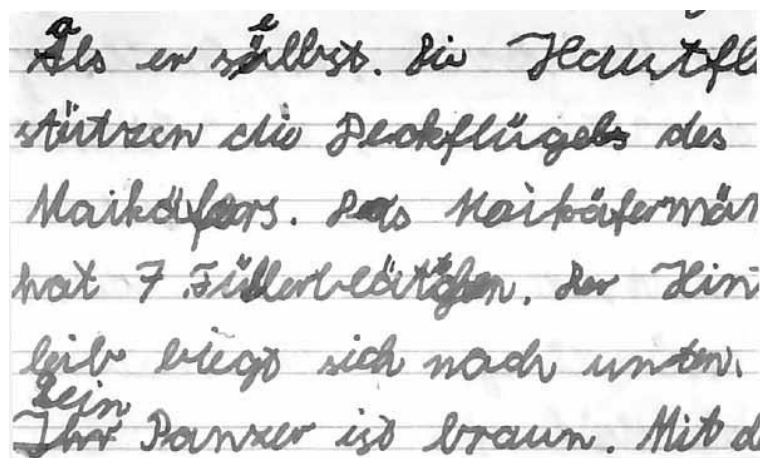 als er selbst. Die Hautfl
stützen die Deckflügels des
Maikäfers. Das Maikäfermän
hat 7 Fühlerblättchen. Der Hin
leib biegt sich nach unten.
Sein
Ihr Panzer ist braun. Mit d